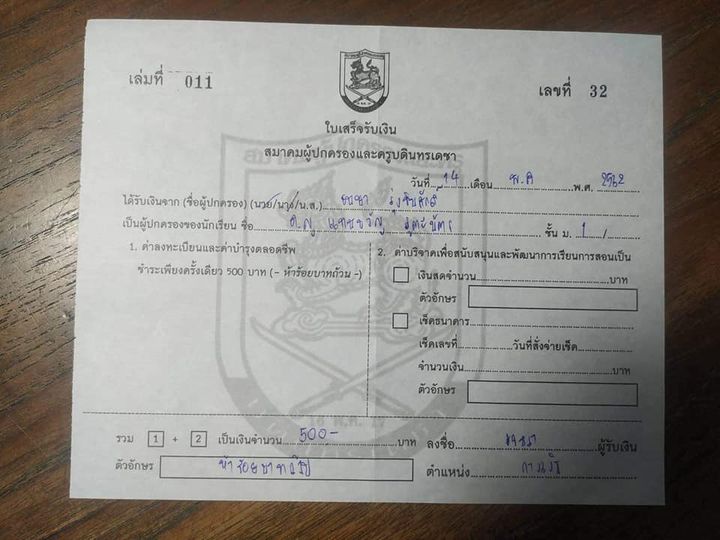 เล่มที่ 011
เลขที่ 32
ใบเสร็จรับเงิน
สมาคมผู้ปกครองและครูบดินทรเดชา
วันที่ 14 เดือน พ.ค พ.ศ. 2562
ได้รับเงินจาก (ชื่อผู้ปกครอง) (นาย/นาง/น.ส.)
เป็นผู้ปกครองของนักเรียน ชื่อ ด.ญ ชั้น ม. 1 /
1. ค่าลงทะเบียนและค่าบำรุงตลอดชีพ
ชำระเพียงครั้งเดียว 500 บาท (- ห้าร้อยบาทถ้วน -)
2. ค่าบริจาคเพื่อสนับสนุนและพัฒนาการเรียนการสอนเป็น
เงินสดจำนวน บาท
ตัวอักษร
เช็คธนาคาร
เช็คเลขที่ วันที่สั่งจ่ายเช็ค
จำนวนเงิน บาท
ตัวอักษร
รวม 1 + 2 เป็นเงินจำนวน 500- บาท ลงชื่อ ผู้รับเงิน
ตัวอักษร ห้าร้อยบาทถ้วน ตำแหน่ง